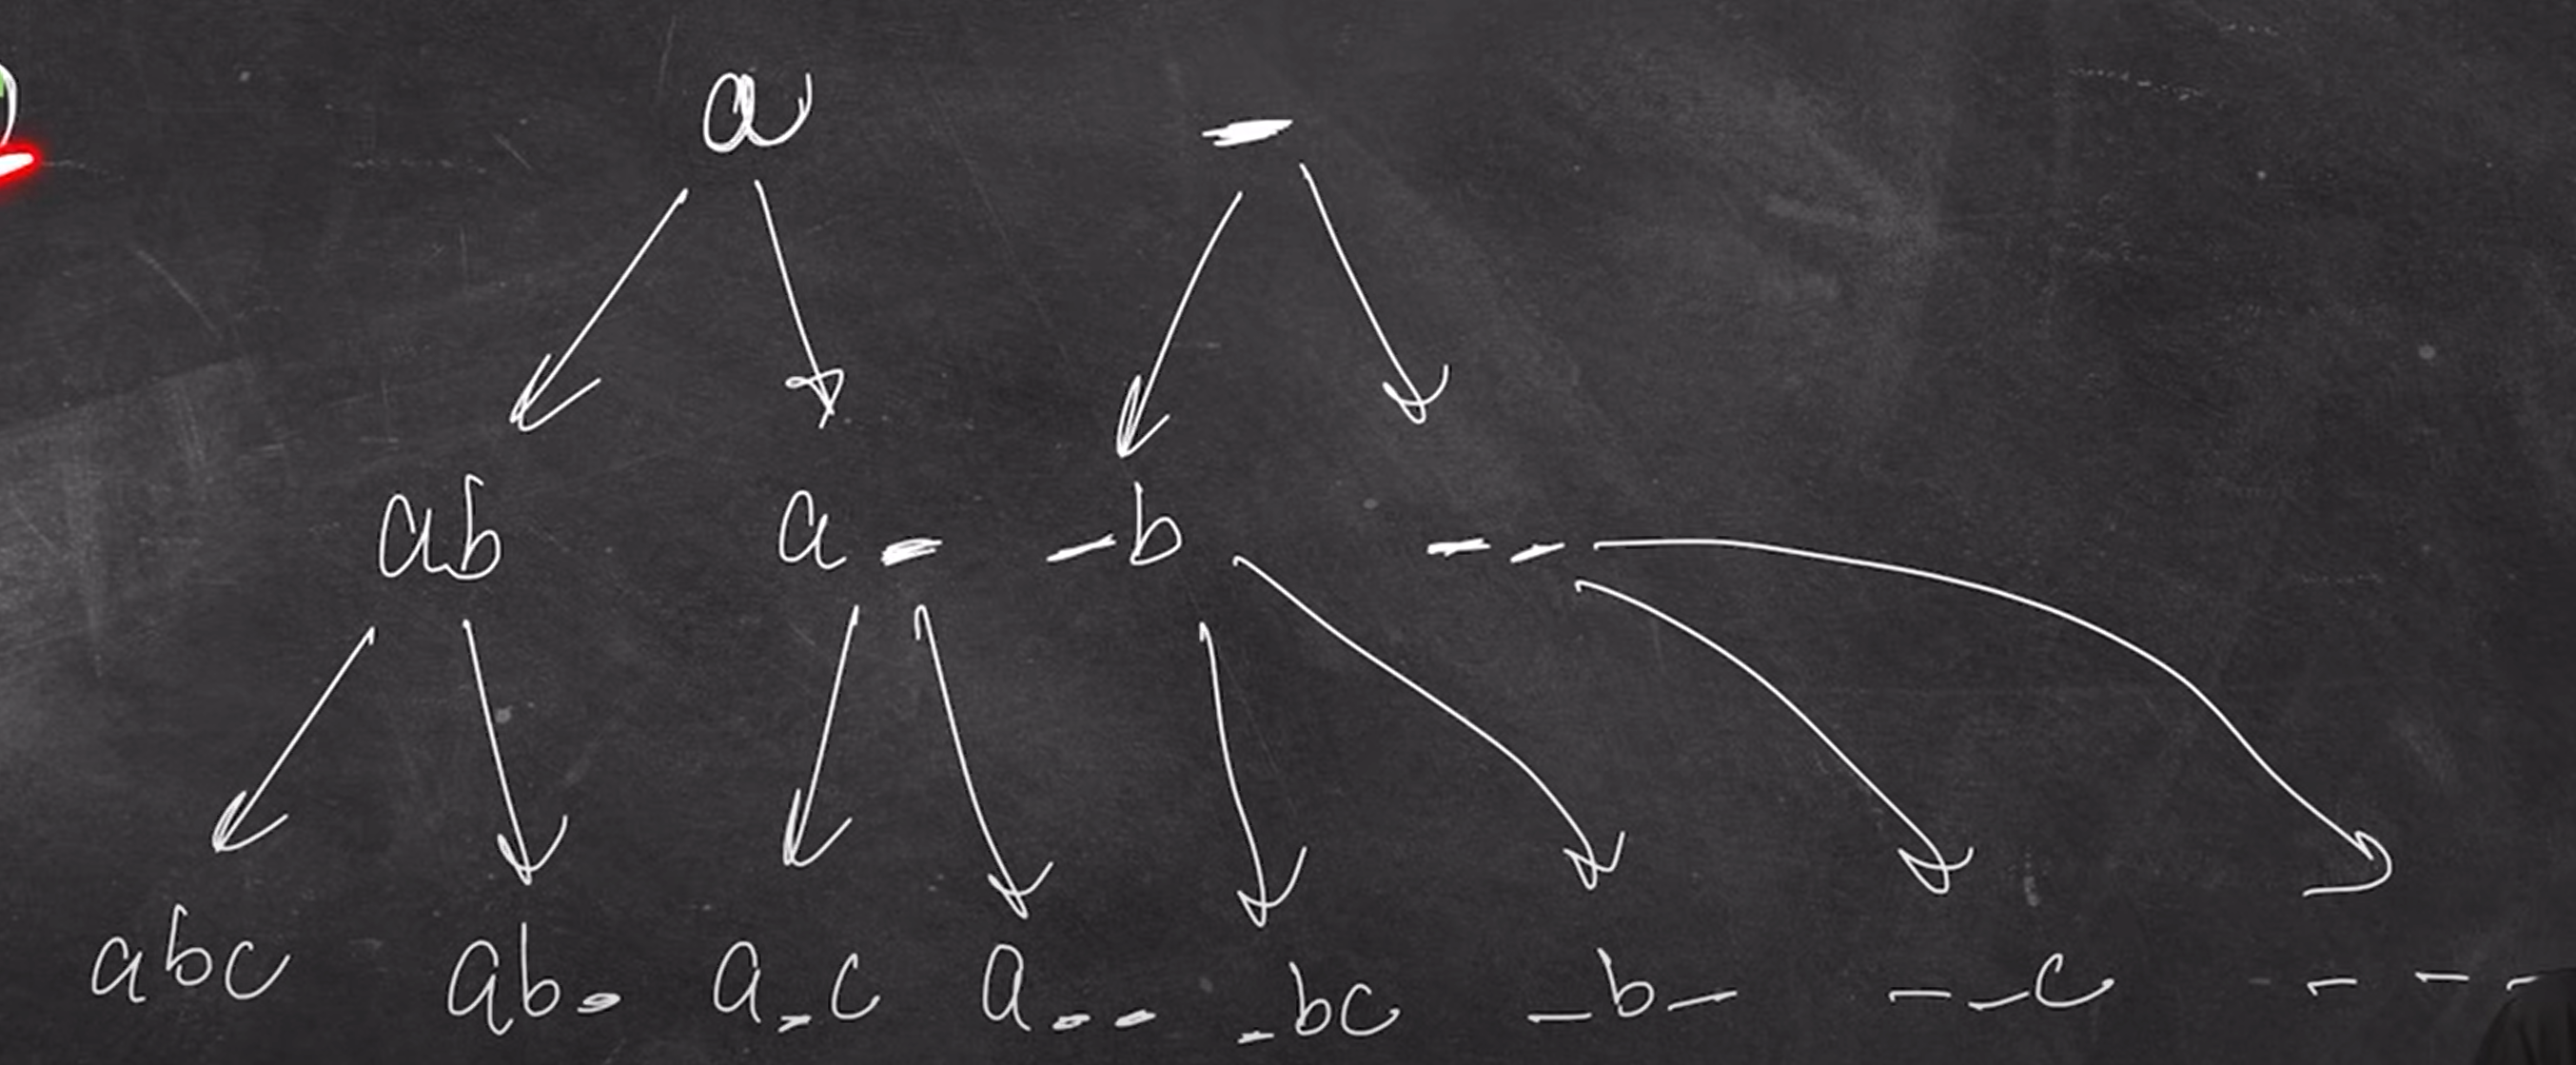 a -
ab a - - b - -
abc ab- a-c a-- -bc -b- --c ---